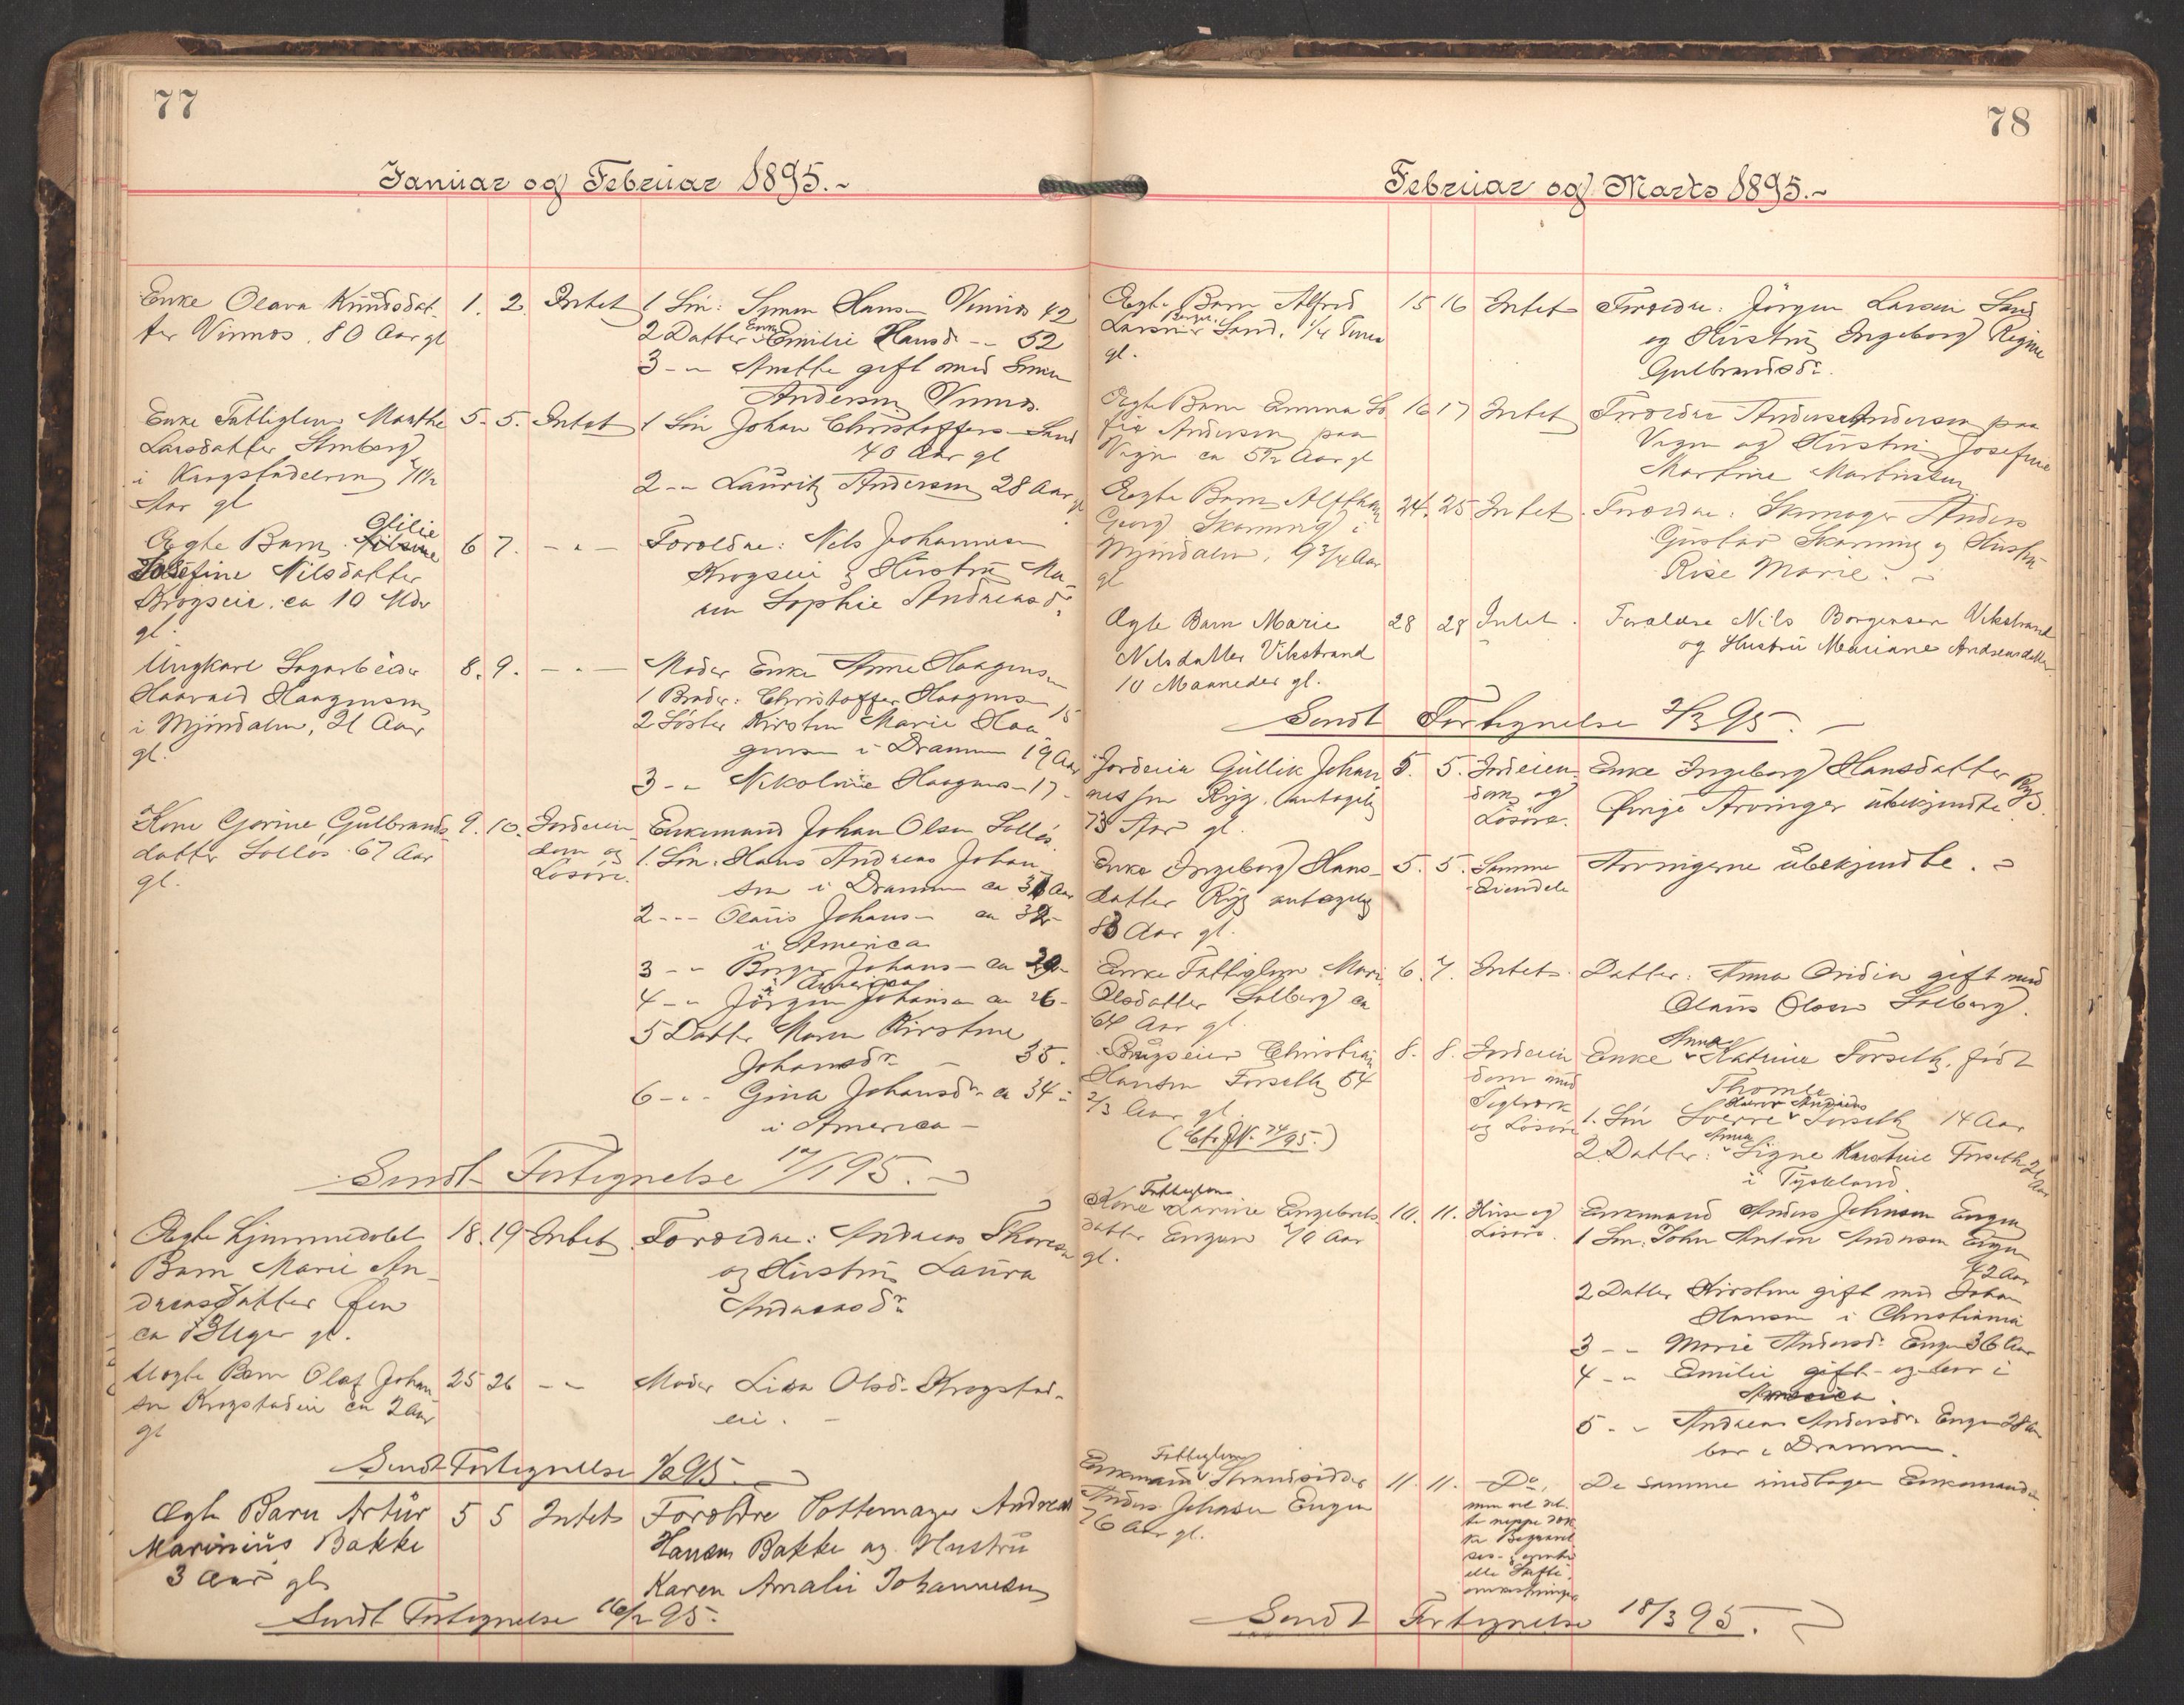 77
Januar og Februar 1895.-
Enke Olava Knudsdat-
ter Vinnes. 80 Aar gl
1. 2. Intet
1 Sön: Simen Hansen Vinnes 42
2 Datter Enke Emilie Hansd. -- 52
3 - " Anette gift med Simen
Andersen Vinnes.
Enke Fattiglem Marthe
Larsdatter
i
Aar gl
5. 5. Intet
1 Sön Johan Christoffers- Sand
40 Aar gl
2 - - Lauritz Andersen 28 Aar gl
Ægte Barn Otilie
Josefine Nilsdatter
Krogseie. ca 10 Mdr
gl.
6 7. - " -
Foreldre: Nels Johannesen
Krogseie & Hustru Ma-
ren Sophie Andreasdr.
Ungkarl Sagarbeider
Haavald Haagensen
i Mjöndalen, 21 Aar
gl.
8. 9. - " -
Moder Enke Anne Haagensen
1 Broder: Christoffer Haagens- 15
2 Söster Kirsten Marie Haa-
gensen i Drammen 19 Aar
3 - " Nikoline Haagens- 17 -
Kone Gorine Gulbrands-
datter Solløs 67 Aar
gl.
9. 10. Jordeien-
dom og
Lösöre.
Enkemand Johan Olsen Solløs.
1. Sön. Hans Andreas Johan-
sen i Drammen ca 37 Aar
2 - - - Olaus Johans - ca 32 -
i America
3 - - Borger Johans - ca 29 -
i America
4 - " Jörgen Johansen ca 26 -
5 Datter Maren Kirstine
Johansdr - 35.
6 - " - Gina Johansdr ca 34 -
i America -
Sendt Fortegnelse 12/1 95. -
Ægte hjemmedøbt
Barn Marie An-
dreasdatter
ca 13 Uger gl.
18. 19 Intet
Foreldre: Andreas Thoresen
og Hustru Laura
Andreasdr
Uægte Barn Olaf Johan-
sen Krogstadeie ca 2 Aar
gl
25 26 - " -
Moder Lisa Olsd. Krogstad-
eie. -
Sendt Fortegnelse 1/2 95. -
Ægte Barn Artur
Marinius Bakke
3 Aar gl.
5 5 Intet
Foreldre Pottemager Andreas
Hansen Bakke og Hustru
Karen Amalie Johannesen
Sendt Fortegnelse 16/2 95.
78
Februar og Marts 1895.-
Ægte Barn Alfred
Larsen Sand. 1/4 Time
gl.
15 16 Intet
Foreldre: Jörgen Larsen Sand
og Hustru Ingeborg Regine
Gulbrandsdr.
Ægte Barn Emma So-
fie Andersen paa
Vegn ca 5 1/2 Aar gl
16 17 Intet
Foreldre Anders Andersen paa
Vegn og Hustru Josefine
Martine Martinsen
Ægte Barn
Georg Skarning i
Mjöndalen, 9 3/4 Aar
gl
24. 25. Intet.
Foreldre: Skomager Anders
Gustav Skarning og Hustru
Rise Marie. -
Ægte Barn Marie
Nilsdatter Vikstrand
10 Maaneder gl.
28 28 Intet.
Foreldre Nils Borgersen Vikstrand
og Hustru Mariane Andreasdatter
Sendt Fortegnelse 2/3 95. -
Jordeier Gullik Johan-
nessen Ryg. antagelig
73 Aar gl.
5. 5. Jordeien-
dom og
Lösöre.
Enke Ingeborg Hansdatter Ryg.
Övrige Arvinger ubekjendte
Enke Ingeborg Hans-
datter Ryg antagelig
83 Aar gl.
5. 5. Samme
Eiendele
Arvingerne ubekjendte. -
Enke Fattiglem Mari
Olsdatter Solberg ca
64 Aar gl.
6. 7. Intet.
Datter: Anna Ovidia gift med
Olaus Olsen Solberg.
Brugseier Christian
Hansen Forseth 54
2/3 Aar gl.
(Cfr. JN. 74/95.)
8. 8. Jordeien-
dom med
Teglværk
og Lösöre
Enke Anna Katrine Forseth, födt
Thomle
1. Sön Sverre Forseth 14 Aar
2 Datter: Anna Signe Kirstine Forseth 21 Aar
i Tyskland
Kone Fattiglem Karine Engebrets-
datter Engen 70 Aar
gl.
10. 11. Huse og
Lösöre.
Enkemand Anders Johnsen Engen
1 Sön. John Anton Andersen Engen
42 Aar
2 Datter Kirstine gift med Johan
Hansen i Christiania
3 - - Marie Andersd. Engen 36 Aar
4 - " Emilie gift - og bor i
America
5 - " Andrea Andersdr. Engen 28 Aar
bor i Drammen.
Enkemand Fattiglem Strandsidder
Anders Johnsen Engen
76 Aar gl.
11. 11. - Do,
men vil det-
te neppe dæk-
ke Begravel-
ses-
eller Skifte-
omkostninger
De samme undtagen Enkemanden.
Sendt Fortegnelse 18/3 95.